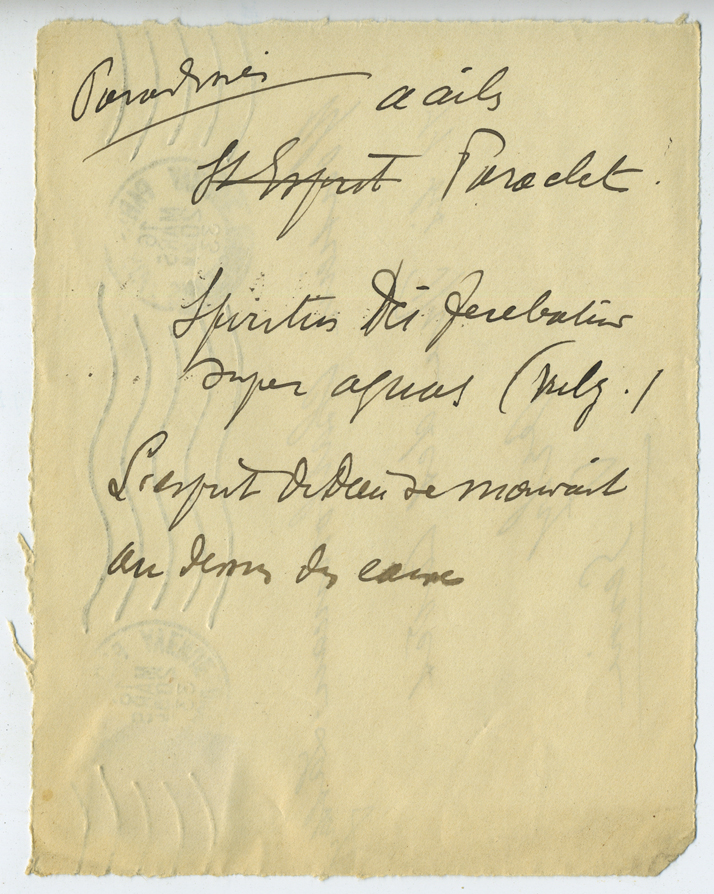 Paradisiers a ails
St Esprit Paraclet.
Spiritus Dei ferebatur
super aquas (Vulg.)
L'esprit de Dieu se mouvait
au dessus des eaux